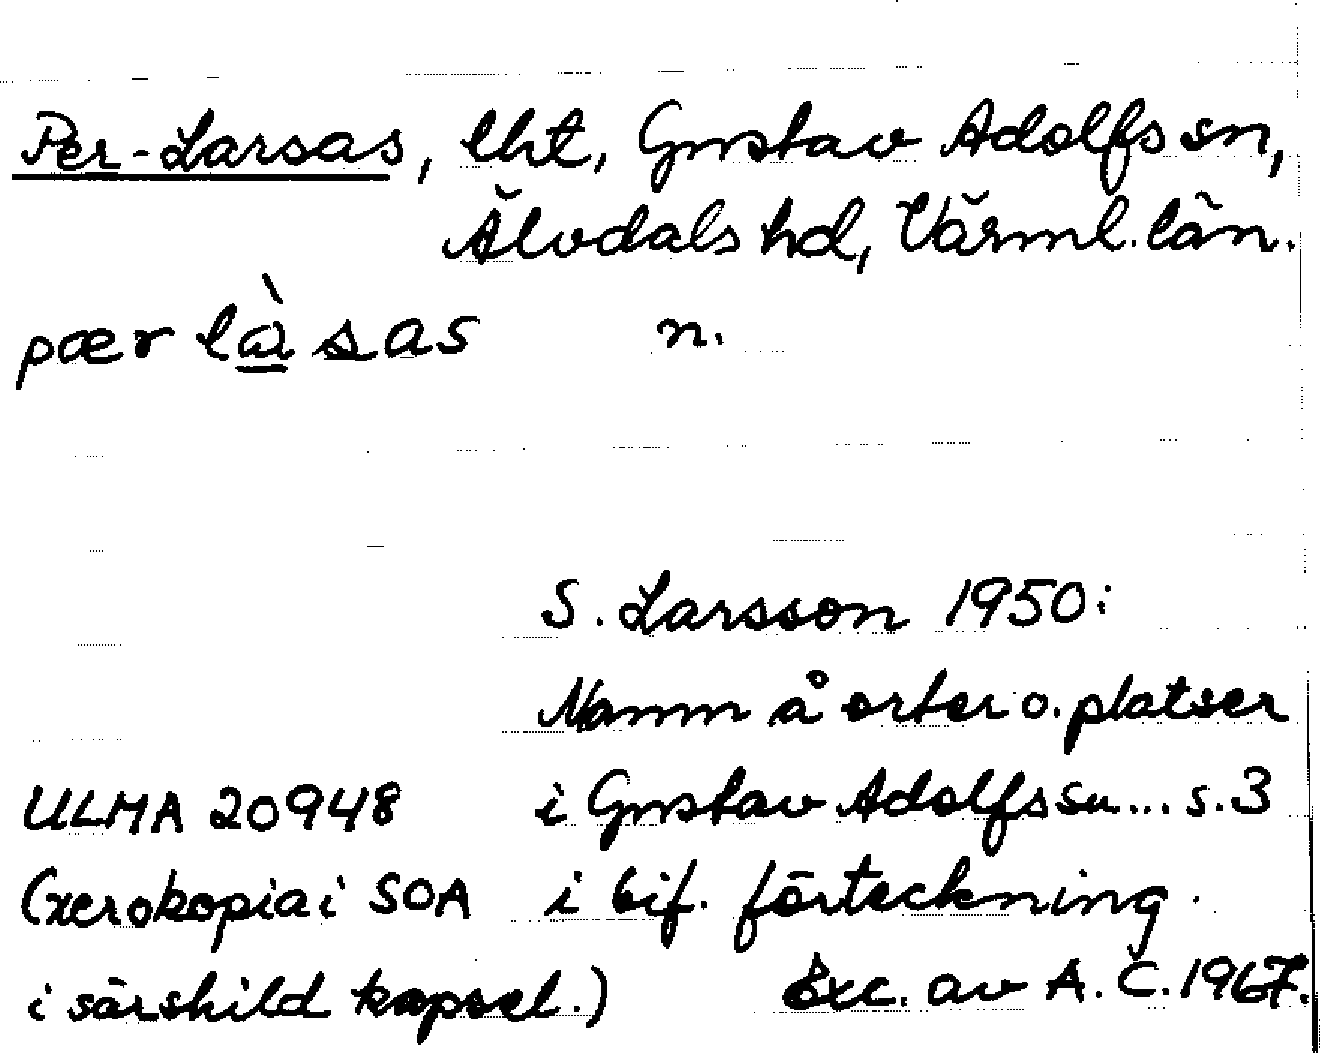 Per-Larsas, lht, Gustav Adolfs sn,
Älvdals hd, Värml. län.
pær là̱sas n.
S. Larsson 1950:
Namn å orter o. platser
ULMA 20948 i Gustav Adolfs sn... s.3
(xerokopia i SOA i bif. förteckning.
i särskild kapsel.) Exc. av A. C. 1967.